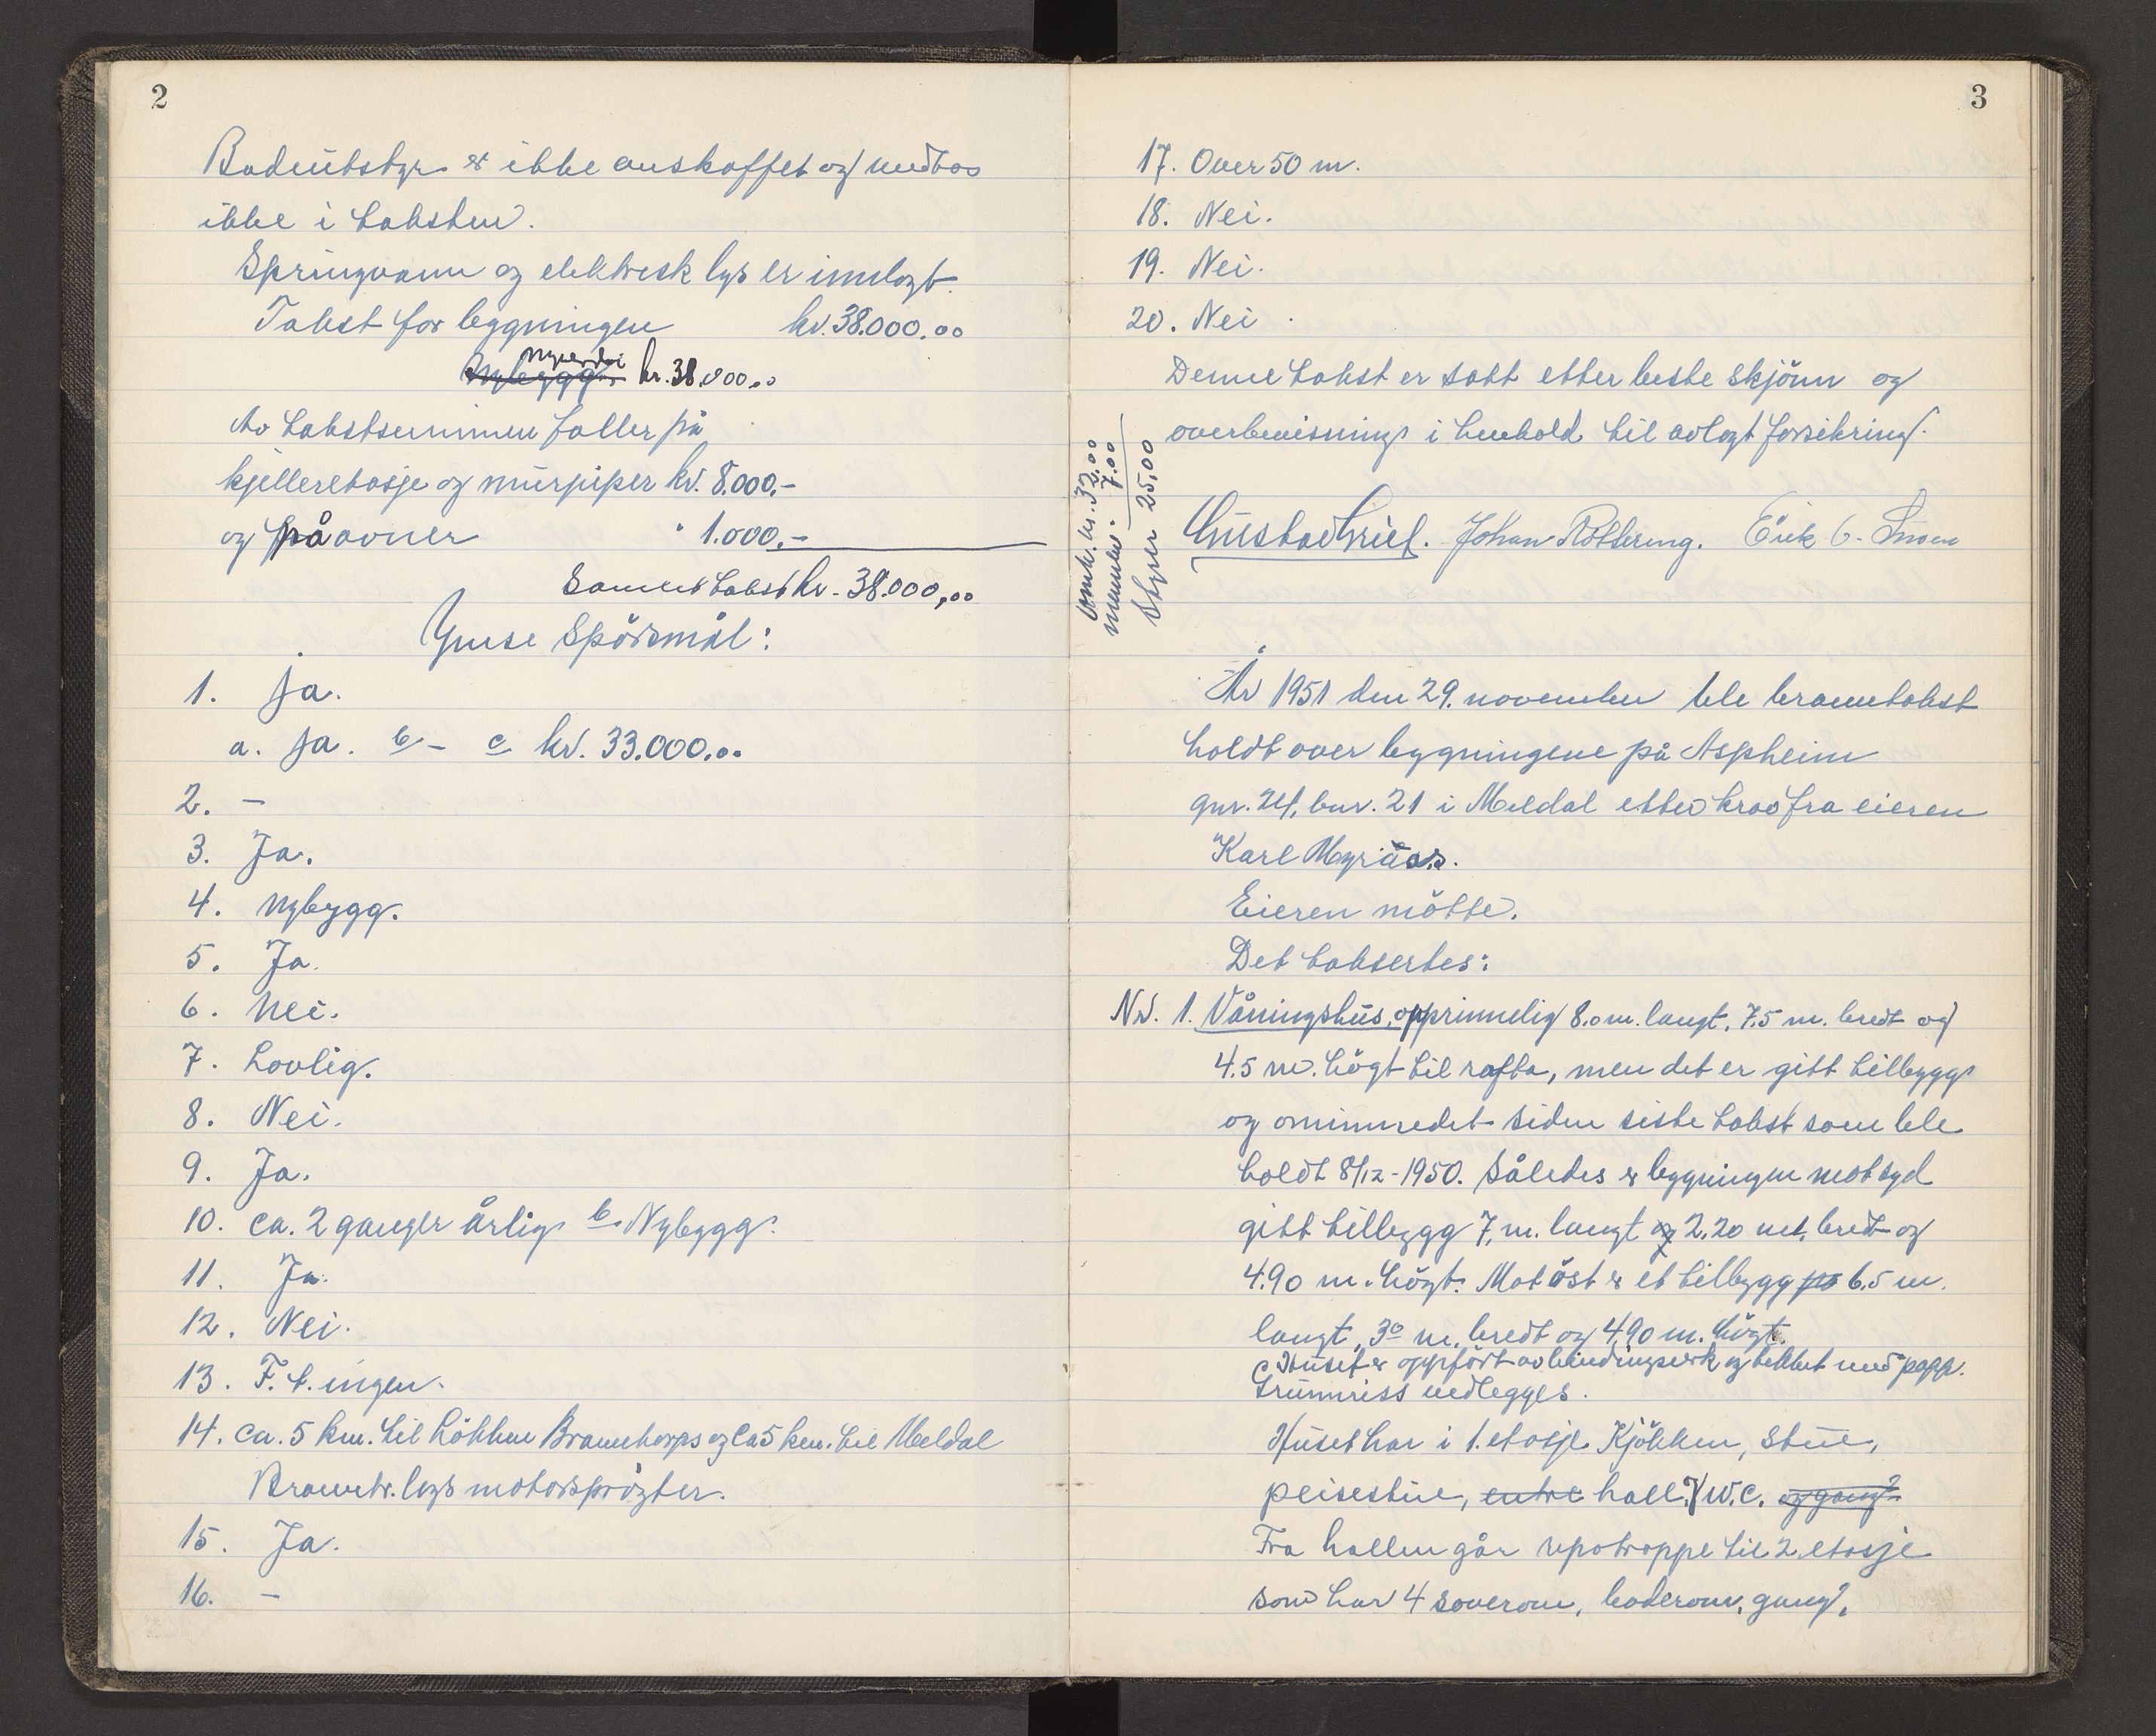 2
Badeutstyr er ikke anskaffet og medtas
ikke i taksten.
Springvann og elektrisk lys er innlagt.
Takst for bygningen kr. 38.000.00
nyverdi
Nybygg kr. 38.000.00
Av takstsummen faller på
kjelleretasje og murpiper kr. 8.000.-
og på ovner " 1.000.-
Samlet takst kr. 38.000,00
Ymse Spörsmål:
1. Ja.
a. Ja. b - c kr. 33.000.00
2. -
3. Ja.
4. Nybygg.
5. Ja.
6. Nei.
7. Lovlig.
8. Nei.
9. Ja.
10. Ca. 2 ganger årlig b. Nybygg.
11. Ja.
12. Nei.
13. F. t. ingen.
14. Ca. 5 km. til Lökken Brannkorps og Ca 5 km. til Meldal
Brannv. lags motorspröyter.
15. Ja.
16. -
3
17. Over 50 m.
18. Nei.
19. Nei.
20. Nei.
Denne takst er satt etter beste skjönn og
overbevisning i henhold til avlagt forsikring.
Omk. kr. 32,00
7.00
Styer 25,00
Johan Röttering. Erik O. Snoen
År 1951 den 29. november ble branntakst
holdt over bygningene på Aspheim
gnr. 24, bnr. 21 i Meldal etter krav fra eieren
Karl Myraas.
Eieren mötte.
Det taksertes:
Nr. 1. Våningshus, opprinnelig 8.0 m. langt, 7.5 m. bredt og
4.5 m. högt til rafta, men det er gitt tilbygg
og ominnredet siden siste takst som ble
holdt 8/12-1950. Således er bygningen mot syd
gitt tilbygg 7, m. langt og 2.20 mt. bredt og
4.90 m. högt. Mot öst er et tilbygg på 6.5 m.
langt, 3º m. bredt og 4.90 m. högt.
Huset er oppfört av bindingsverk og tekket med papp.
Grunnriss vedlegges.
Huset har i 1. etasje Kjökken, stue,
peisestue, entre hall. og W.C. og gang.
Fra hallen går upotrappe til 2 etasje
som har 4 soverom, baderom, gang,